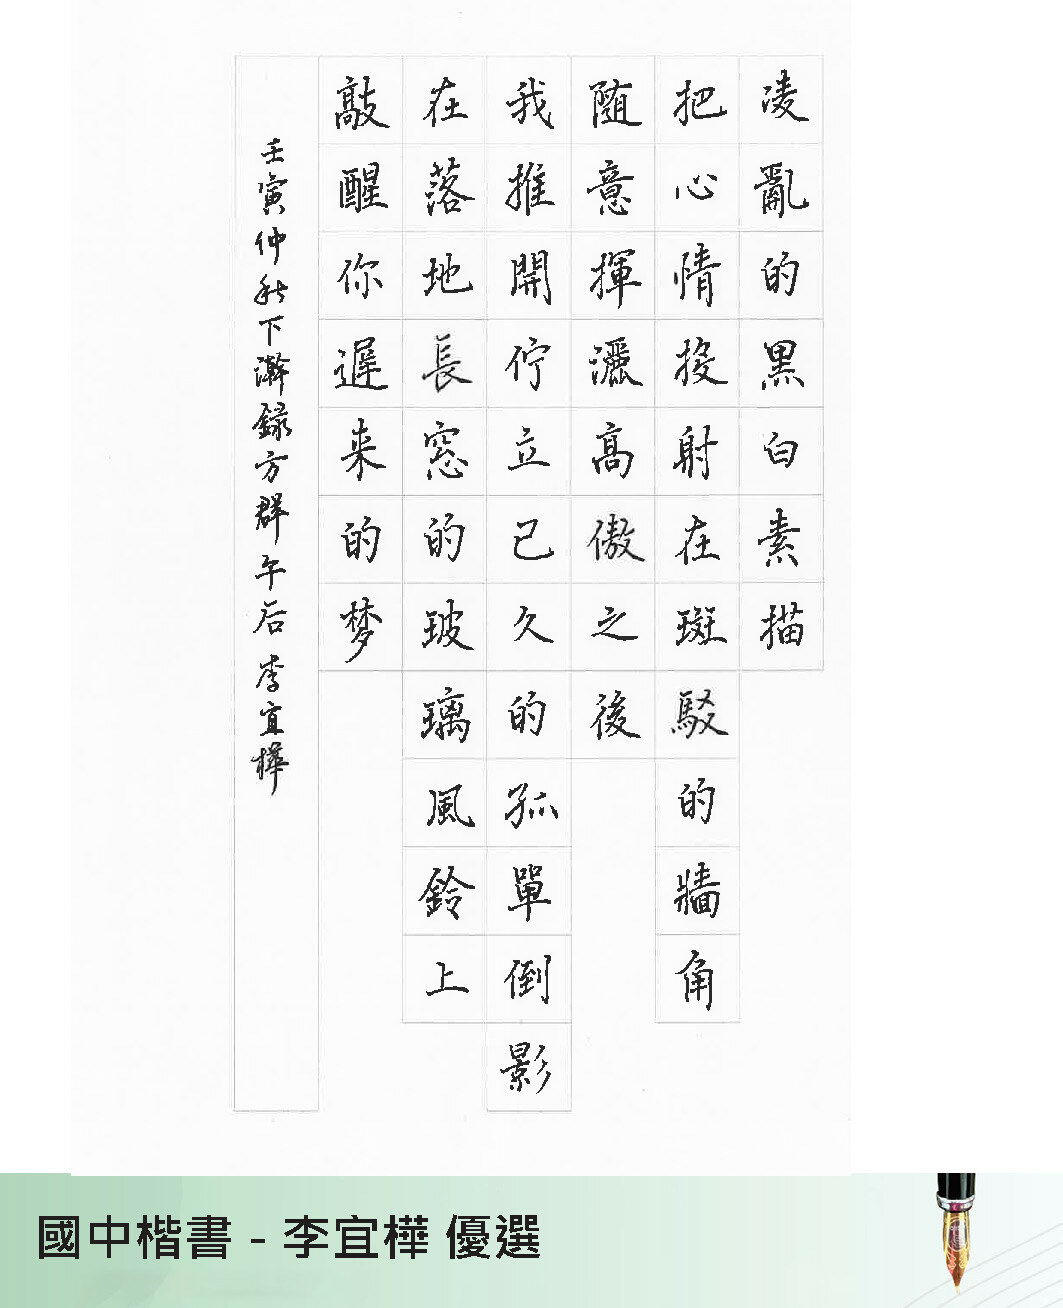 凌亂的黑白素描
把心情投射在斑駁的牆角
随意揮灑高傲之後
我推開佇立已久的孤單倒影
在落地長窓的玻璃風鈴上
敲醒你遲来的梦
壬寅仲秋下澣録方群午后 李宜樺
國中楷書 - 李宜樺 優選